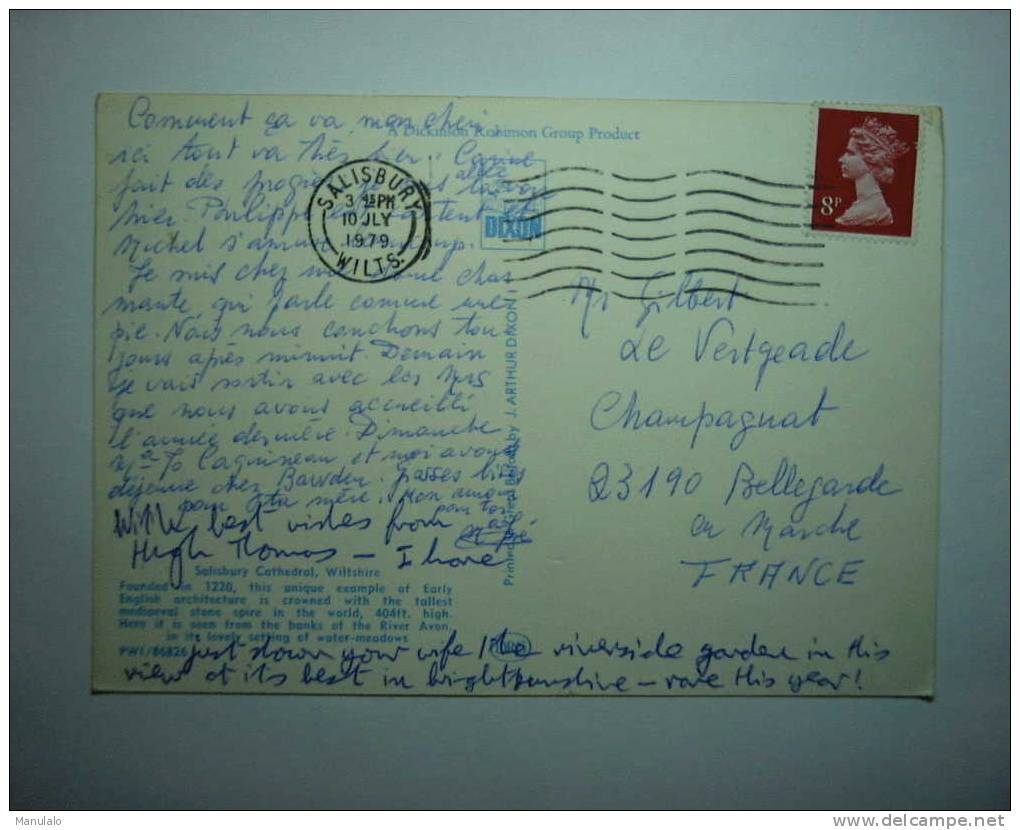 Comment ça va, mon chéri
A Dickinson Robinson Group Product
ici tout va très bien. Carine
fait des progrès
hier. Philippe
Michel s'amuse beaucoup.
Je suis chez une char
mante, qui parle comme une
pie. Nous nous couchons tou
jours après minuit. Demain
je vais sortir avec les
que nous avons accueilli
l'année dernière. Dimanche
et moi avons
déjeuné chez Bawden.
pour ta mère. Mon
With best wishes from
Hugh Thomas — I have
Salisbury Cathedral, Wiltshire
Founded in 1220, this unique example of Early
English architecture is crowned with the tallest
mediaeval stone spire in the world, 404ft. high.
Here it is seen from the banks of the River Avon,
in its lovely setting of water-meadows
PWI/86826
just shown your wife the riverside garden in this
view at its best in bright sunshine — rare this year!
SALISBURY
3 15 PM
10 JLY
1979
WILTS.
DIXON
by J. ARTHUR DIXON
8P
Mr Gilbert
Le Vertgeade
Champagnat
23190 Bellegarde
en Marche
FRANCE
Manulalo
www.delcampe.net